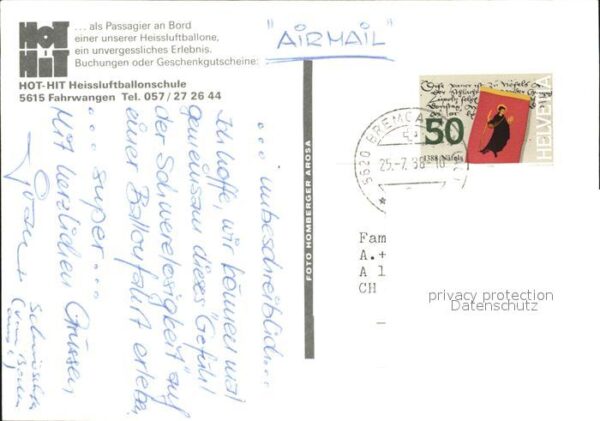 HOT
HiT
... als Passagier an Bord
einer unserer Heissluftballone,
ein unvergessliches Erlebnis.
Buchungen oder Geschenkgutscheine:
HOT-HIT Heissluftballonschule
5615 Fahrwangen Tel. 057/27 26 44
"AIRMAIL"
... unbeschreiblich...
Ich hoffe, wir können mal
gemeinsam dieses "Gefühl
der Schwerelosigkeit" auf
einer Ballonfahrt erleben,
... super...
Mit herzlichen Grüssen
FOTO HOMBERGER AROSA
50
1388 Näfels
HELVETIA
5620 BREMGA
25.-7. 88-18
Fam
A.+
A l
CH
privacy protection
Datenschutz